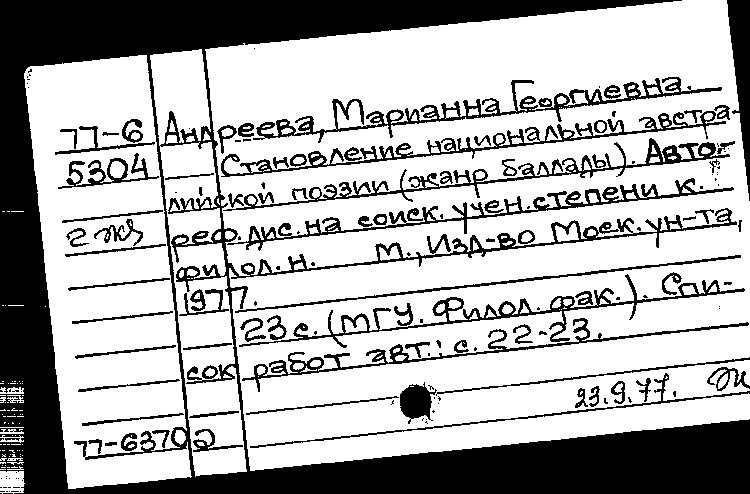 77-6 Андреева, Марианна Георгиевна.
5304 Становление национальной австра-
лийской поэзии (жанр баллады). Авто-
2 экз реф.дис.на соиск.учен.степени к.
филол.н. М., Изд-во Моск.ун-та,
1977.
23 с. (МГУ. Филол. фак.). Спи-
сок работ авт.: с. 22-23.
23.9.77.
77-6370